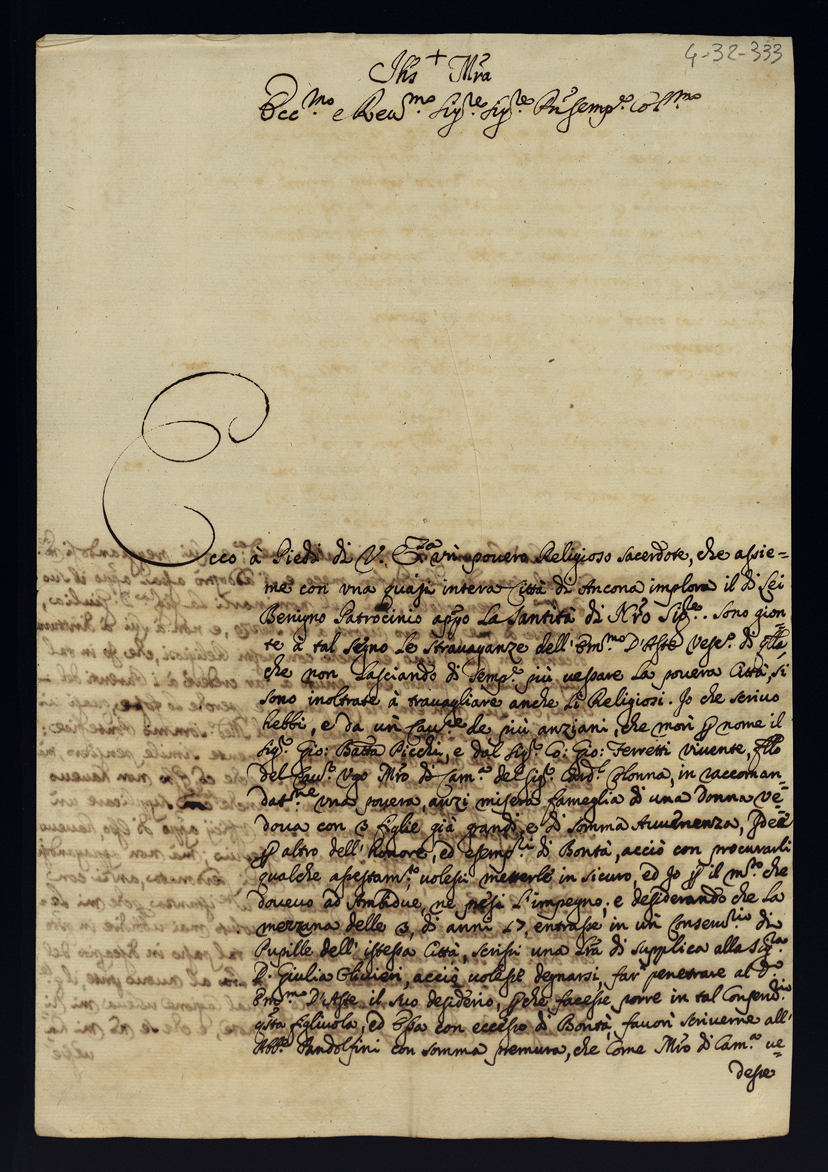 4-32-333
Jhs + Mra
Ecc.mo e Reu.mo Sig.re Sig.re Pron Semp.e Col.mo
Ecco à Piedi di V. Ecza un pouero Religioso Sacerdote, che assie=
me con vna quasi intera Città di Ancona implora il di Lei
Benigno Patrocinio appo La Santità di Nro Sig.re. Sono gion=
te à tal segno Le strauaganze dell'Em.mo D'Aste Vesc.o di qlla,
che non Lasciando di semp.e più vessare La pouera Città, si
sono inoltrate à trauagliare anche Li Religiosi. Jo che scriuo
hebbi, e da un Cau.re de più anziani, che morì p nome il
Sig.r Gio: Batta Picchi, e dal Sig.r Co: Gio: Ferretti viuente, fllo
del Cau.re Vgo Mro di Cam.a del Sig.r Card.l Colonna, in raccoman=
dat.ne vna pouera, anzi misera fameglia di una Donna ve=
doua con 3 figlie già grandi, e di somma Auuenenza,
p altro dell'honore, ed esemp.ri di Bontà, acciò con procurarli
qualche assestam.to uolessi metterle in sicuro, ed Jo p il m.to che
doueuo ad Ambidue, ne presi L'impegno; e desiderando che La
mezzana delle 3, di anni 17, entrasse in un Conseru.rio di
Pupille dell'istessa Città, scrissi una Lra di supplica alla Sig.ra
D. Giulia Oliuieri, acciò uolesse degnarsi, far penetrare al D.o
Em.mo D'Aste il suo desiderio, pche facesse porre in tal Conserv.rio
qsta figliuola, ed Essa con eccesso di Bontà, fauorì scriuerne all'
Abb.e Pandolfini con somma premura, che come Mro di Cam.a ve=
desse